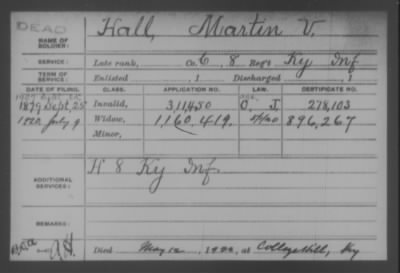 DEAD
NAME OF SOLDIER: Hall, Martin V.
SERVICE: Late rank, Co. C, 8 Reg't Ky Inf
TERM OF SERVICE: Enlisted , 1 Discharged , 1
DATE OF FILING. CLASS. APPLICATION NO. LAW. CERTIFICATE NO.
1879 Sept. 25 Invalid, 311,450 O. I. 278,103
July 9 Widow, 1,160,419. 896,267
Minor,
ADDITIONAL SERVICES: H 8 Ky Inf
REMARKS:
Died May 12, at College Hill, Ky